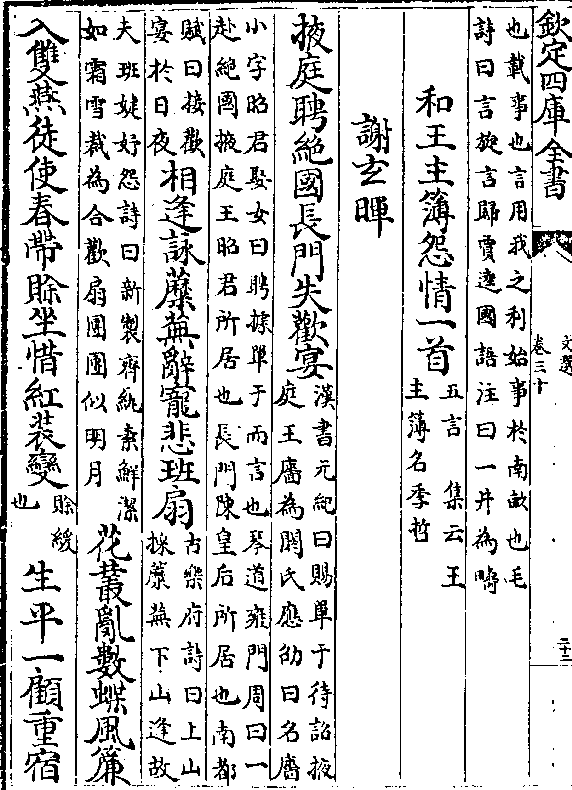 欽定四庫全書
文選
卷三十
二十二
也載事也言用我之利始事於南畝也毛
詩曰言旋言歸賈逵國語注曰一井為疇
和王主簿怨情一首
五言　集云王
主簿名季哲
謝玄暉
掖庭聘絶國長門失歡宴
漢書元紀曰賜單于待詔掖
庭王廧為閼氏應劭曰名廧
小字昭君娶女曰聘據單于而言也琴道雍門周曰一
赴絶國掖庭王昭君所居也長門陳皇后所居也南都
賦曰接歡
宴於日夜
相逢詠蘼蕪辭寵悲班扇
古樂府詩曰上山
採蘼蕪下山逢故
夫班婕妤怨詩曰新製齊紈素鮮潔
如霜雪裁為合歡扇團團似明月
花叢亂數蝶風簾
入雙燕徒使春帶賖坐惜紅裝變
賖緩
也
生平一顧重宿